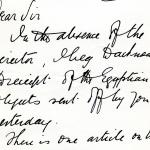 Dear Sir
In the absence of the
Director, I beg
receipt of the Egyptian
objects sent off by you
yesterday.
There is one article on